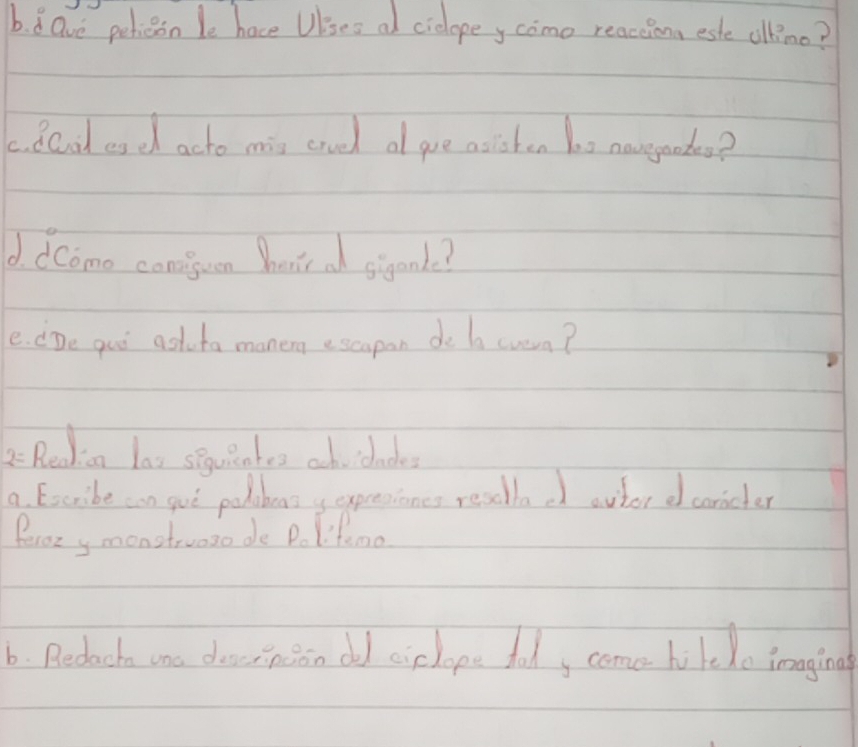 b. ¿Qué petición le hace Ulises al ciclope y cómo reacciona este último?
c. ¿Cuál es el acto más cruel al que asisten los navegantes?
d. ¿Cómo consiguen herir al gigante?
e. ¿De qué astuta manera escapan de la cueva?
2- Realiza las siguientes actividades
a. Escribe con qué palabras y expresiones resalta el autor el carácter
feroz y monstruoso de Polifemo.
b. Redacta una descripción del ciclope tal y como tú te lo imaginas